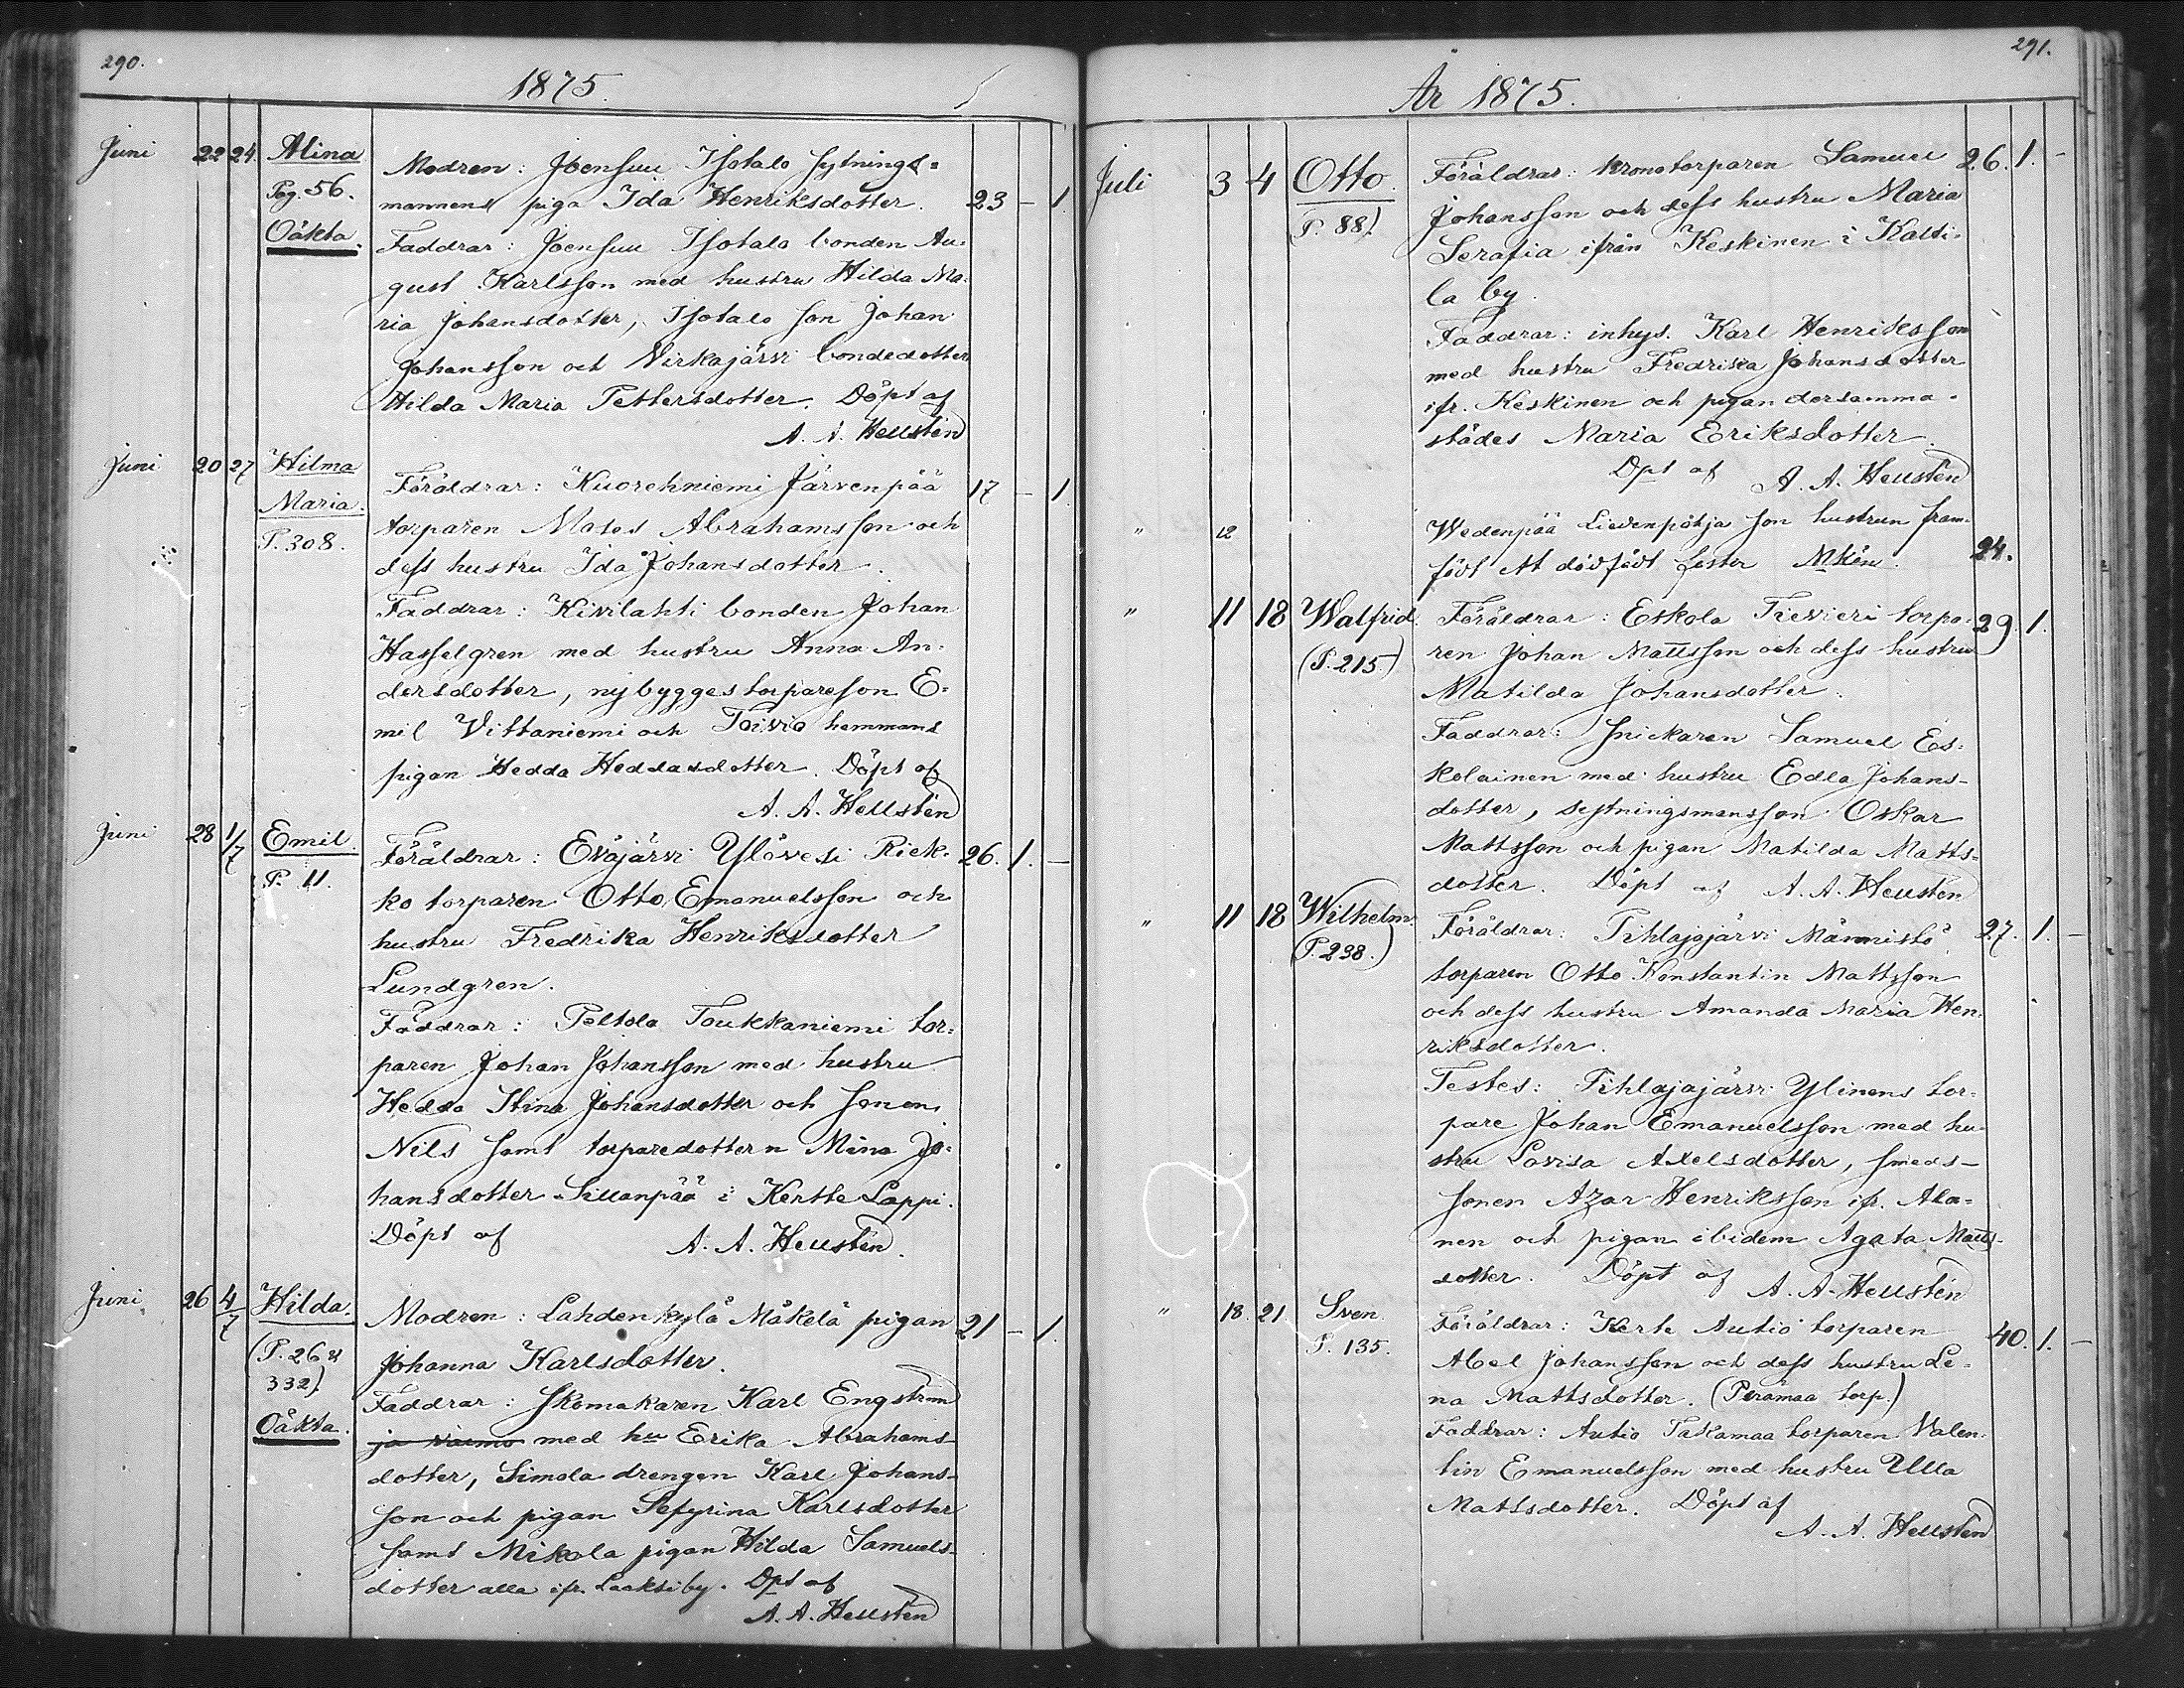 290.
1875.
Juni 22 24. Alina Modren: Joensuu Isotalo sytnings=
Pag. 56. mannens piga Ida Henriksdotter. 23 — 1.
Oäkta. Faddrar: Joensuu Isotalo bonden Au=
gust Karlsson med hustru Hilda Ma=
ria Johansdotter, Isotalo son Johan
Johansson och Virkajärvi bondedotter
Hilda Maria Pettersdotter. Döpt af
A. A. Hellstén
Juni 20 27 Hilma Föräldrar: Kuorehniemi Järvenpää 17 — 1
Maria. torparen Moses Abrahamsson och
P. 308. dess hustru Ida Johansdotter.
Faddrar: Kivilahti bonden Johan
Hasselgren med hustru Anna An=
dersdotter, nybyggestorpareson E=
mil Vittaniemi och Toivio hemmans
pigan Hedda Heddasdotter. Döpt af
A. A. Hellstén
Juni 28 1/7 Emil. Föräldrar: Eväjärvi Ylövesi Riek= 26. 1. —
P. 11. ko torparen Otto Emanuelsson och
hustru Fredrika Henriksdotter
Lundgren.
Faddrar: Peltola Toukkaniemi tor=
paren Johan Johansson med hustru
Hedda Stina Johansdotter och sonen
Nils samt torparedottern Mina Jo=
hansdotter Sillanpää i Kertte Lappi.
Döpt af A. A. Hellstén.
Juni 26 4/7 Hilda. Modren: Lahdenkylä Mäkelä pigan 21 — 1.
(P. 26 & Johanna Karlsdotter.
332). Faddrar: Skomakaren Karl Engström
Oäkta. ja vaimo med hu Erika Abrahams=
dotter, Simola drengen Karl Johans=
son och pigan Sefyrina Karlsdotter
samt Mikola pigan Hilda Samuels=
dotter alla ifr. Laaksi by. Dpt af
A. A. Hellstén
291.
År 1875.
Juli 3 4 Otto. Föräldrar: Kronotorparen Samuel 26. 1. —
(P. 88). Johansson och dess hustru Maria
Serafia ifrån Keskinen i Kalti=
la by.
Faddrar: inhys. Karl Henriksson
med hustru Fredrika Johansdotter
ifr. Keskinen och pigan dersamma=
städes Maria Eriksdotter.
Dpt af A. A. Hellstén
" 12 Wedenpää Lievenpohja son hustrun fram=
födt ett dödfödt foster Mkön. 24.
" 11 18 Walfrid. Föräldrar: Eskola torpa= 29. 1.
(P. 215.) ren Johan Mattsson och dess hustru
Matilda Johansdotter.
Faddrar: Snickaren Samuel Es=
kolainen med hustru Edla Johans=
dotter, sytningsmansson Oskar
Mattsson och pigan Matilda Matts=
dotter. Döpt af A. A. Hellstén
" 11 18 Wilhelm. Föräldrar: Pihlajajärvi Männistö 27. 1. —
(P. 238.) torparen Otto Konstantin Mattsson
och dess hustru Amanda Maria Hen=
riksdotter.
Testes: Pihlajajärvi Ylinens tor=
pare Johan Emanuelsson med hu=
stru Lovisa Axelsdotter, smeds=
sonen Azar Henriksson ifr. Ala=
nen och pigan ibidem Agata Matts=
dotter. Döpt af A. A. Hellstén
" 18. 21 Sven. Föräldrar: Kerte Autio torparen 40. 1. —
P. 135. Abel Johansson och dess hustru Le=
na Mattsdotter. (Perämaa torp.)
Faddrar: Autio Takamaa torparen Valen=
tin Emanuelsson med hustru Ulla
Mattsdotter. Döpt af
A. A. Hellstén